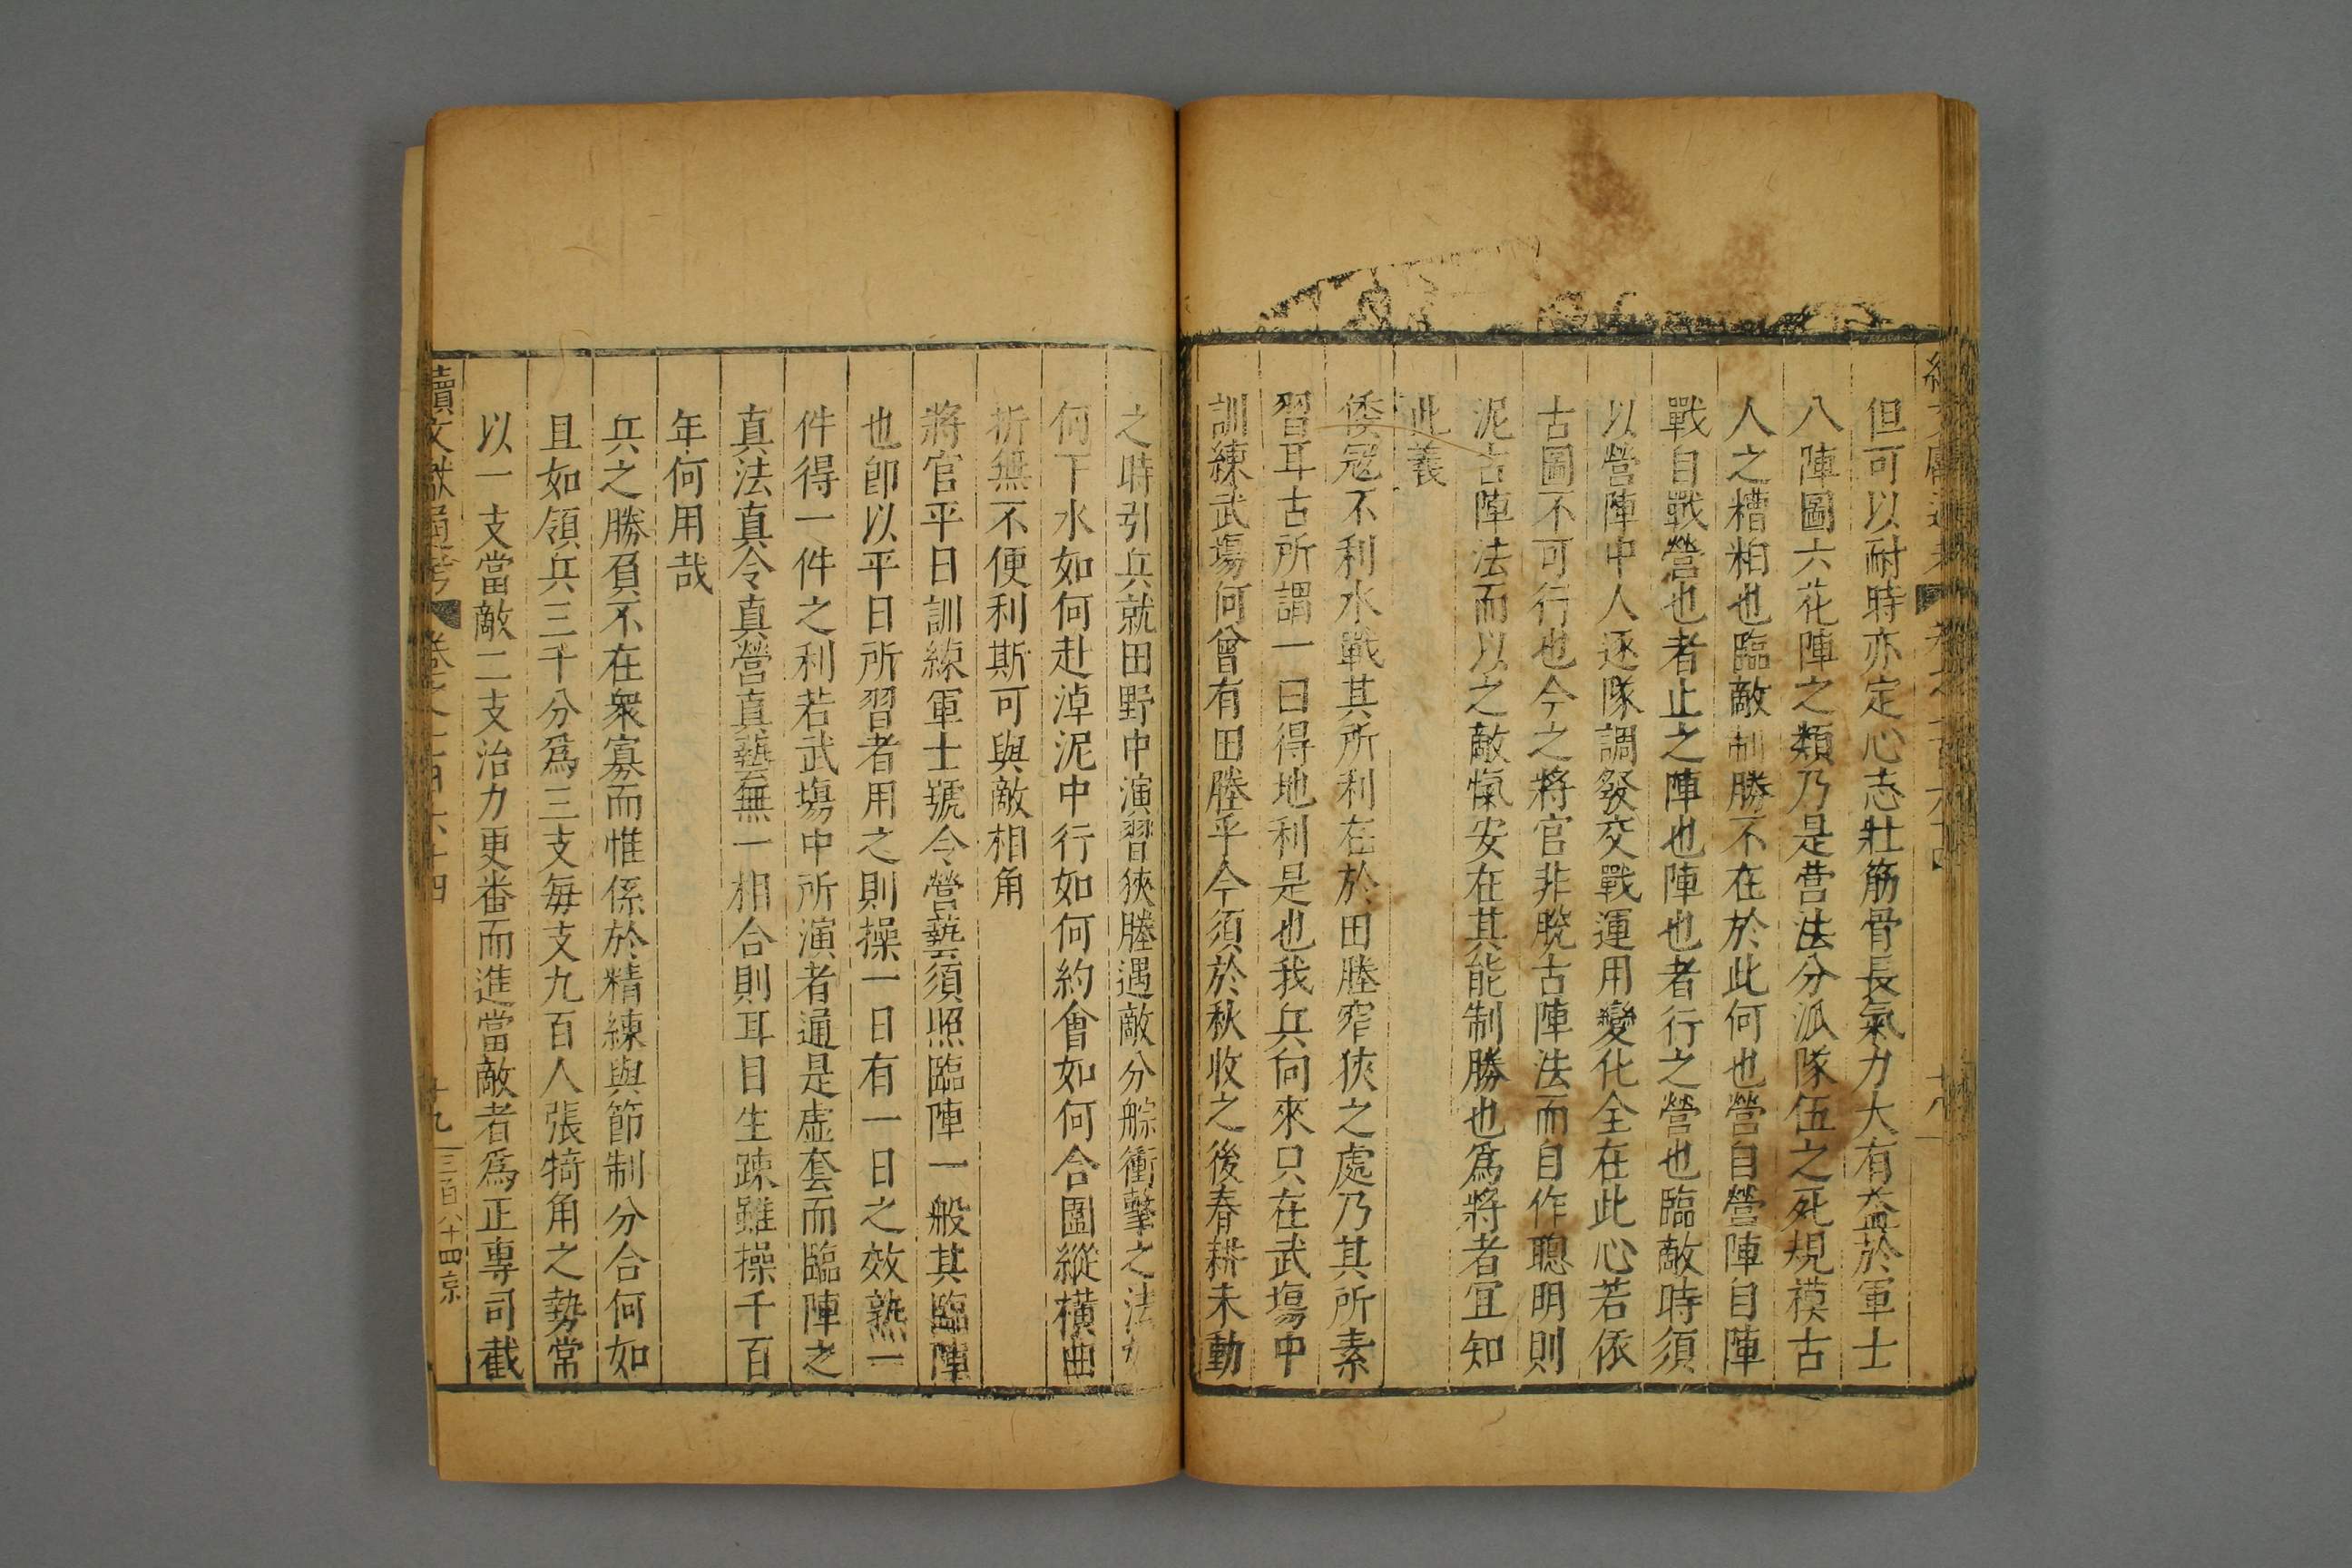 但可以耐時亦定心志壯筋骨長氣力大有益於軍士
八陣圖六花陣之類乃是營法分派隊伍之死規模古
人之糟粕也臨敵制勝不在於此何也營自營陣自陣
戰自戰營也者止之陣也陣也者行之營也臨敵時須
以營陣中人逐隊調發交戰運用變化全在此心若依
古圖不可行也今之將官非脫古陣法而自作聰明則
泥古陣法而以之敵愾安在其能制勝也為將者宜知
此義
倭冦不利水戰其所利在於田塍窄狹之處乃其所素
習耳古所謂一曰得地利是也我兵向來只在武塲中
訓練武塲何曾有田塍乎今須於秋收之後春耕未動
之時引兵就田野中演習狹塍遇敵分艅衝擊之法
何下水如何赴淖泥中行如何約會如何合圍縱橫曲
折無不便利斯可與敵相角
將官平日訓練軍士號令營藝須照臨陣一般其臨陣
也卽以平日所習者用之則操一日有一日之效熟一
件得一件之利若武塲中所演者通是虛套而臨陣之
真法真令真營真藝無一相合則耳目生踈雖操千百
年何用哉
兵之勝負不在衆寡而惟係於精練與節制分合何如
且如領兵三千分為三支每支九百人張犄角之勢常
以一支當敵二支治力更番而進當敵者為正專司截
續文獻通考 卷之一百六十四 十九 三百八十四 京